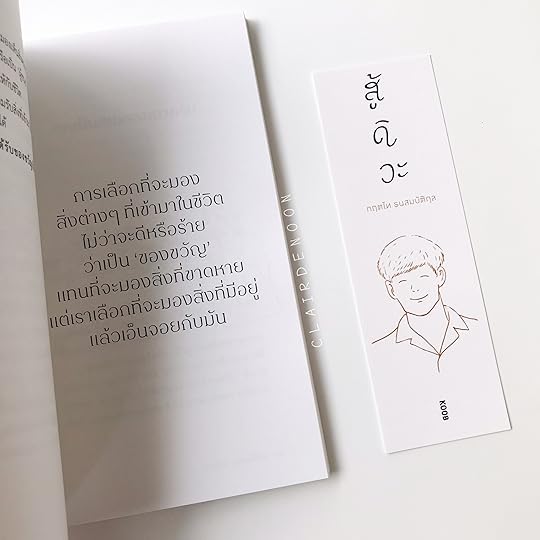 การเลือกที่จะมอง
สิ่งต่างๆ ที่เข้ามาในชีวิต
ไม่ว่าจะดีหรือร้าย
ว่าเป็น ‘ของขวัญ’
แทนที่จะมองสิ่งที่ขาดหาย
แต่เราเลือกที่จะมองสิ่งที่มีอยู่
แล้วเอ็นจอยกับมัน
CLAIRDENOON
สู้
ดิ
วะ
กฤตไท ธนสมบัติกุล
KOOB